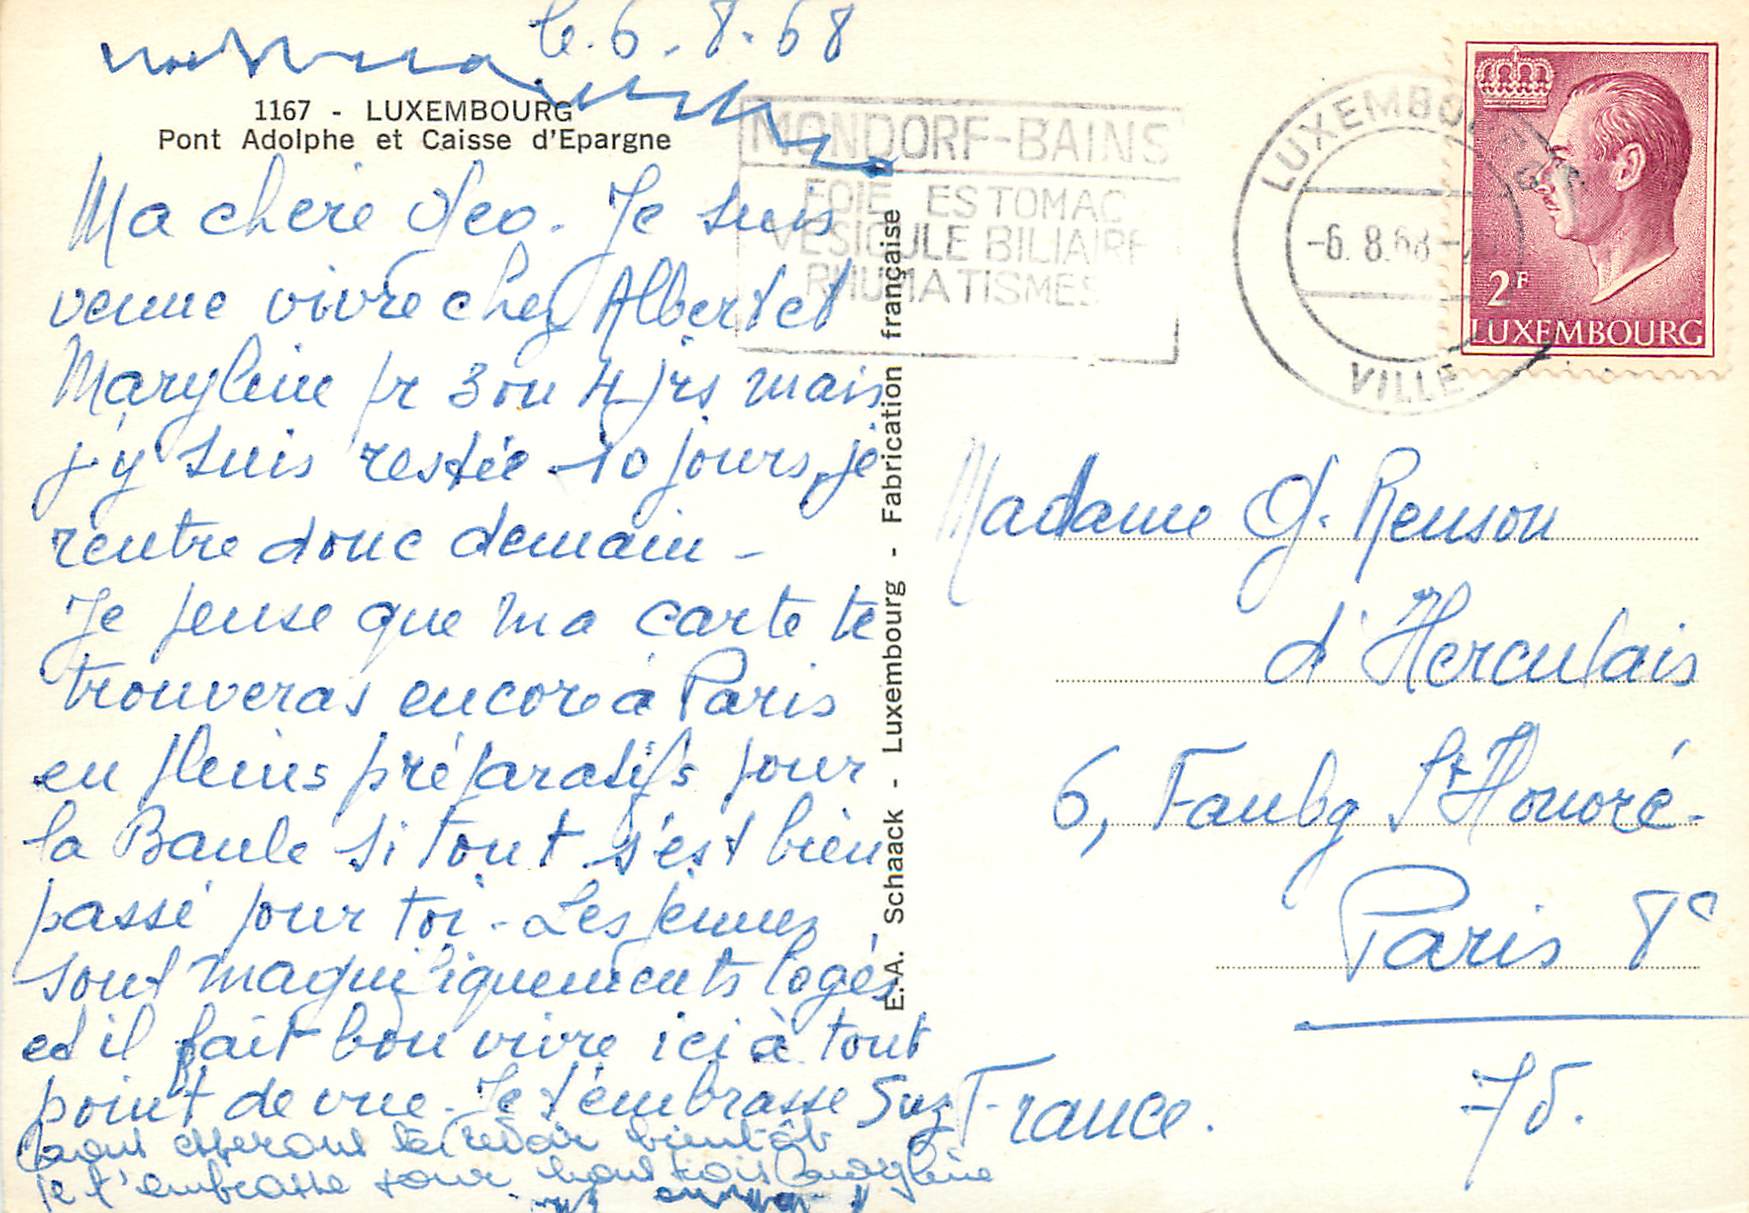 le 6.8.68
1167 - LUXEMBOURG
Pont Adolphe et Caisse d'Epargne
Ma chère Geo. Je suis
venue vivre chez Albert et
Maryleine pr 3 ou 4 jrs mais
j'y suis restée 10 jours, je
rentre donc demain -
Je pense que ma carte te
trouveras encore à Paris
en pleins préparatifs pour
la Baule si tout s'est bien
passé pour toi - Les jeunes
sont magnifiquements logés
et il fait bon vivre ici à tout
point de vue. Je t'embrasse Suz
nous esperons te revoir bientôt
je t'embrasse pour nous trois Maryleine
E.A. Schaack - Luxembourg - Fabrication française
MONDORF-BAINS
FOIE ESTOMAC
VESICULE BILIAIRE
RHUMATISMES
LUXEMBOURG
-6.8.68-
VILLE
2F
LUXEMBOURG
Madame G. Renson
d'Herculais
6, Faubg St Honoré.
Paris 8e
75.
France.